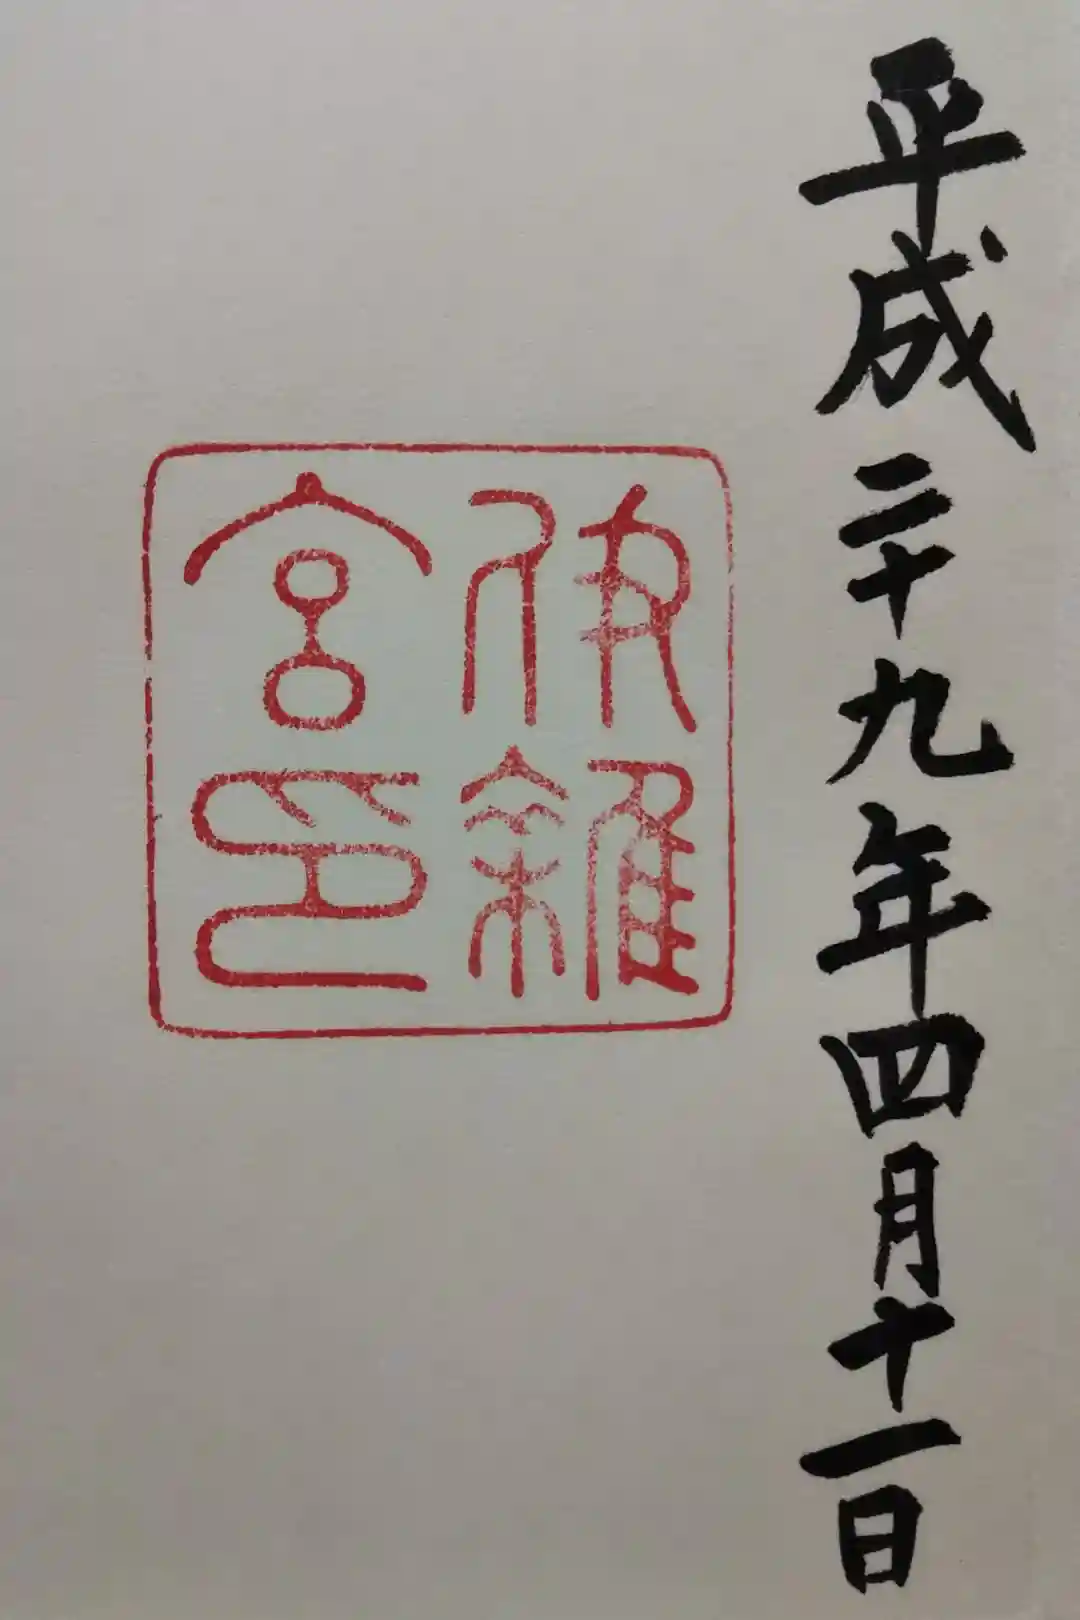 平成二十九年四月十一日
伊雜
宮印